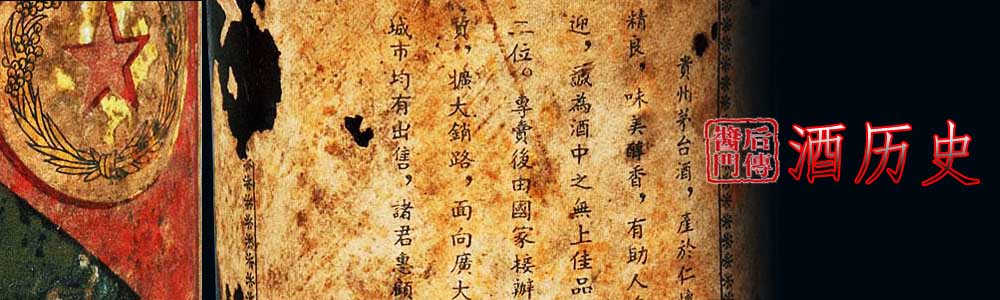 貴州茅台酒，產於仁
精良，味美醇香，有助人
迎，誠為酒中之無上佳品
二位。專賣後由國家接辦
質，擴大銷路，面向廣大
城市均有出售，諸君惠顧
醬門
后傳
酒历史